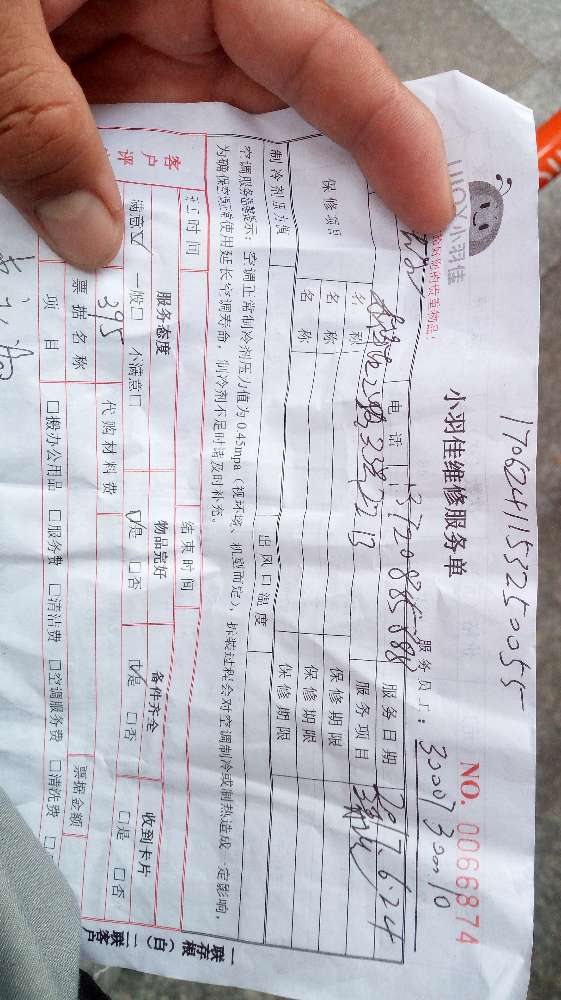 170624153250055
小羽佳
小羽佳维修服务单
NO. 0066874
贵重物品!
服务员工:
电话 13720885888 服务日期 2017.6.24
服务项目
保修项目 名称 保修期限
名称 保修期限
名称 保修期限
制冷剂压力值 出风口温度
空调服务器提示:空调正常制冷剂压力值为0.45mpa(视环境、机型而定),拆装过程会对空调制冷或制热造成一定影响,
为确保空调使用延长空调寿命,制冷剂不足时请及时补充。
时间 结束时间
客户评 服务态度 物品完好 备件齐全 收到卡片
满意☑ 一般□ 不满意□ ☑是 □否 ☑是 □否 □是 □否
395
票据名称 代购材料费 票据金额
项目 □搬办公用品 □服务费 □清洁费 □空调服务费 □清洗费
一联存根(白) 二联客户